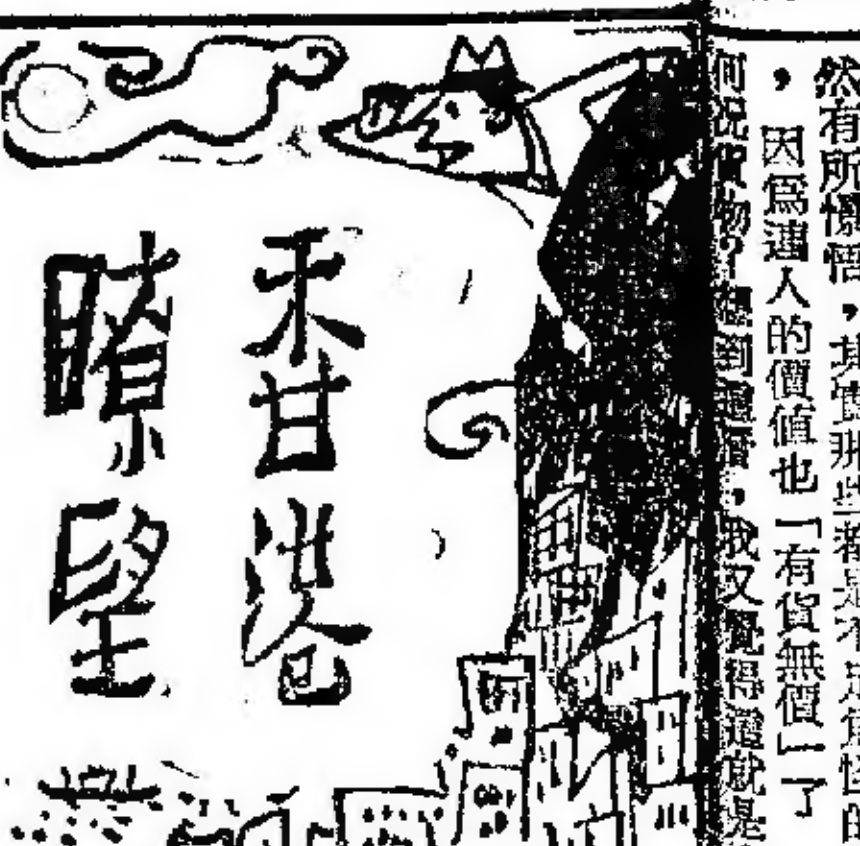 然有所憬悟，其實那些都是不足爲怪的
，因爲連人的價值也「有貨無價」了
何況貨物？想到這層，我又覺得這就是
香港
瞭望